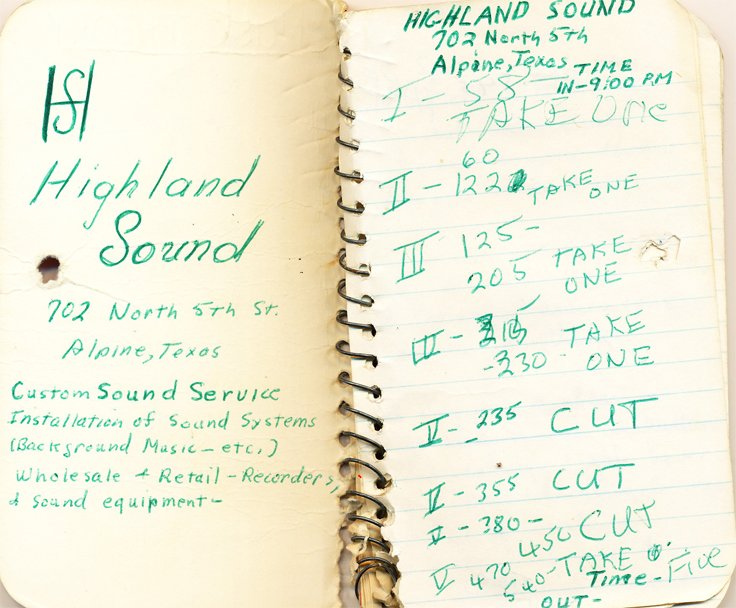 HS
Highland
Sound
702 North 5th St.
Alpine, Texas
Custom Sound Service
Installation of Sound Systems
(Background Music - etc.)
Wholesale + Retail - Recorders,
+ Sound equipment -
HIGHLAND SOUND
702 North 5th
Alpine, Texas
TIME
IN - 9:00 P.M
I - 58 -
TAKE One
60
II - 122 TAKE ONE
III 125 -
205 TAKE
ONE
- 230 TAKE
ONE
V - 235 CUT
V - 355 CUT
V - 380 -
450 CUT
V 470
540 - TAKE Five
Time -
OUT -